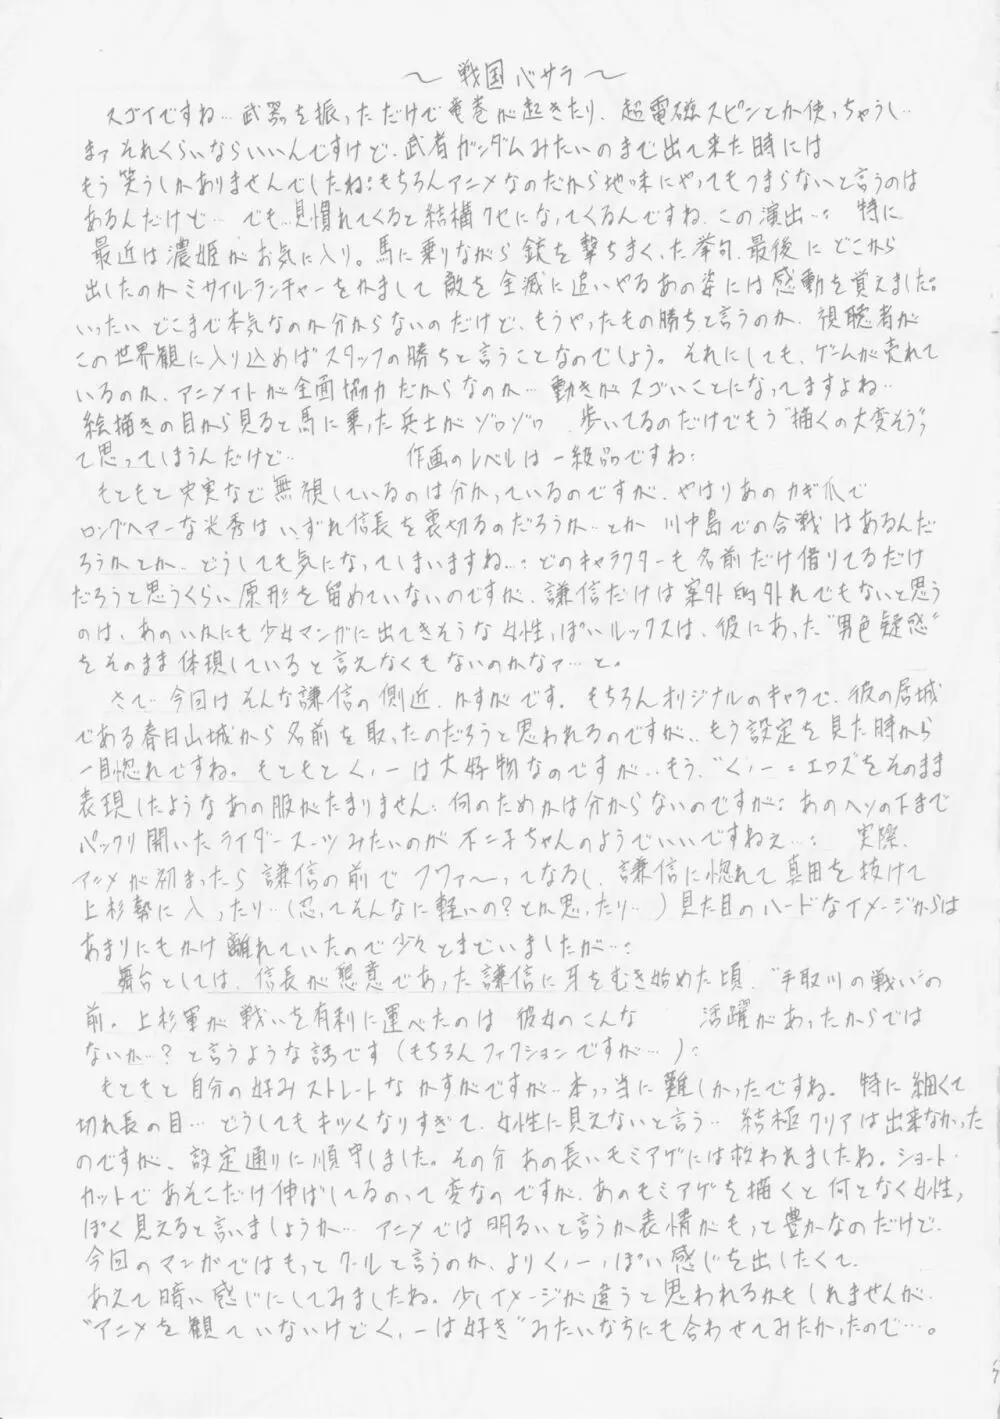 ～ 戦国バサラ ～
スゴイですね… 武器を振っただけで竜巻が起きたり、超電磁スピンとか使っちゃうし…
まァそれくらいならいいんですけど、武者ガンダムみたいのまで出て来た時には
もう笑うしかありませんでしたね: もちろんアニメなのだから地味にやってもつまらないと言うのは
あるんだけど… でも…見慣れてくると結構クセになってくるんですね、この演出…: 特に
最近は濃姫がお気に入り。馬に乗りながら銃を撃ちまくった挙句、最後にどこから
出したのかミサイルランチャーをかまして敵を全滅に追いやるあの姿には感動を覚えました。
いったいどこまで本気なのか分からないのだけど、もうやったもの勝ちと言うのか、視聴者が
この世界観に入り込めばスタッフの勝ちと言うことなのでしょう。それにしても、ゲームが売れて
いるのか、アニメイトが全面協力だからなのか… 動きがスゴいことになってますよね…
絵描きの目から見ると馬に乗った兵士がゾロゾロ 歩いてるのだけでもう“描くの大変そう”っ
て思ってしまうんだけど… 作画のレベルは一級品ですね:
もともと史実など無視しているのは分かっているのですが、やはりあのカギ爪で
ロングヘアーな光秀はいずれ信長を裏切るのだろうか…とか 川中島での合戦はあるんだ
ろうかとか… どうしても気になってしまいますね…: どのキャラクターも名前だけ借りてるだけ
だろうと思うくらい原形を留めていないのですが、謙信だけは案外的外れでもないと思う
のは、あのいかにも少女マンガに出てきそうな女性っぽいルックスは、彼にあった“男色疑惑”
をそのまま体現していると言えなくもないのかなァ…と。
さて、今回はそんな謙信の側近、かすがです。もちろんオリジナルのキャラで、彼の居城
である春日山城から名前を取ったのだろうと思われるのですが、もう設定を見た時から
一目惚れですね。もともとくノ一は大好物なのですが‥もう、“くノ一=エロス”をそのまま
表現したようなあの服がたまりません: 何のためかは分からないのですが: あのヘソの下まで
パックリ開いたライダースーツみたいのが不二子ちゃんのようでいいですねぇ…: 実際、
アニメが初まったら謙信の前でフワァ～ってなるし、謙信に惚れて真田を抜けて
上杉勢に入ったり…(忍ってそんなに軽いの?とか思ったり…)見た目のハードなイメージからは
あまりにもかけ離れていたので少々とまどいましたが…:
舞台としては、信長が懇意であった謙信に牙をむき始めた頃、“手取川の戦い”の
前。上杉軍が戦いを有利に運べたのは 彼女のこんな 活躍があったからでは
ないか…?と言うような話です(もちろんフィクションですが…):
もともと自分の好みストレートなかすがですが…本っ当に難しかったですね。特に細くて
切れ長の目… どうしてもキツくなりすぎて、女性に見えないと言う… 結極クリアは出来なかった
のですが、設定通りに順守しました。その分あの長いモミアゲには救われましたね。ショート・
カットであそこだけ伸ばしてるのって変なのですが、あのモミアゲを描くと何となく女性っ
ぽく見えると言いましょうか… アニメでは明るいと言うか表情がもっと豊かなのだけど、
今回のマンガではもっとクールと言うのか、よりくノ一っぽい感じを出したくて、
あえて暗い感じにしてみましたね。少しイメージが違うと思われるかもしれませんが、
“アニメを観ていないけどくノ一は好き”みたいな方にも合わせてみたかったので…。